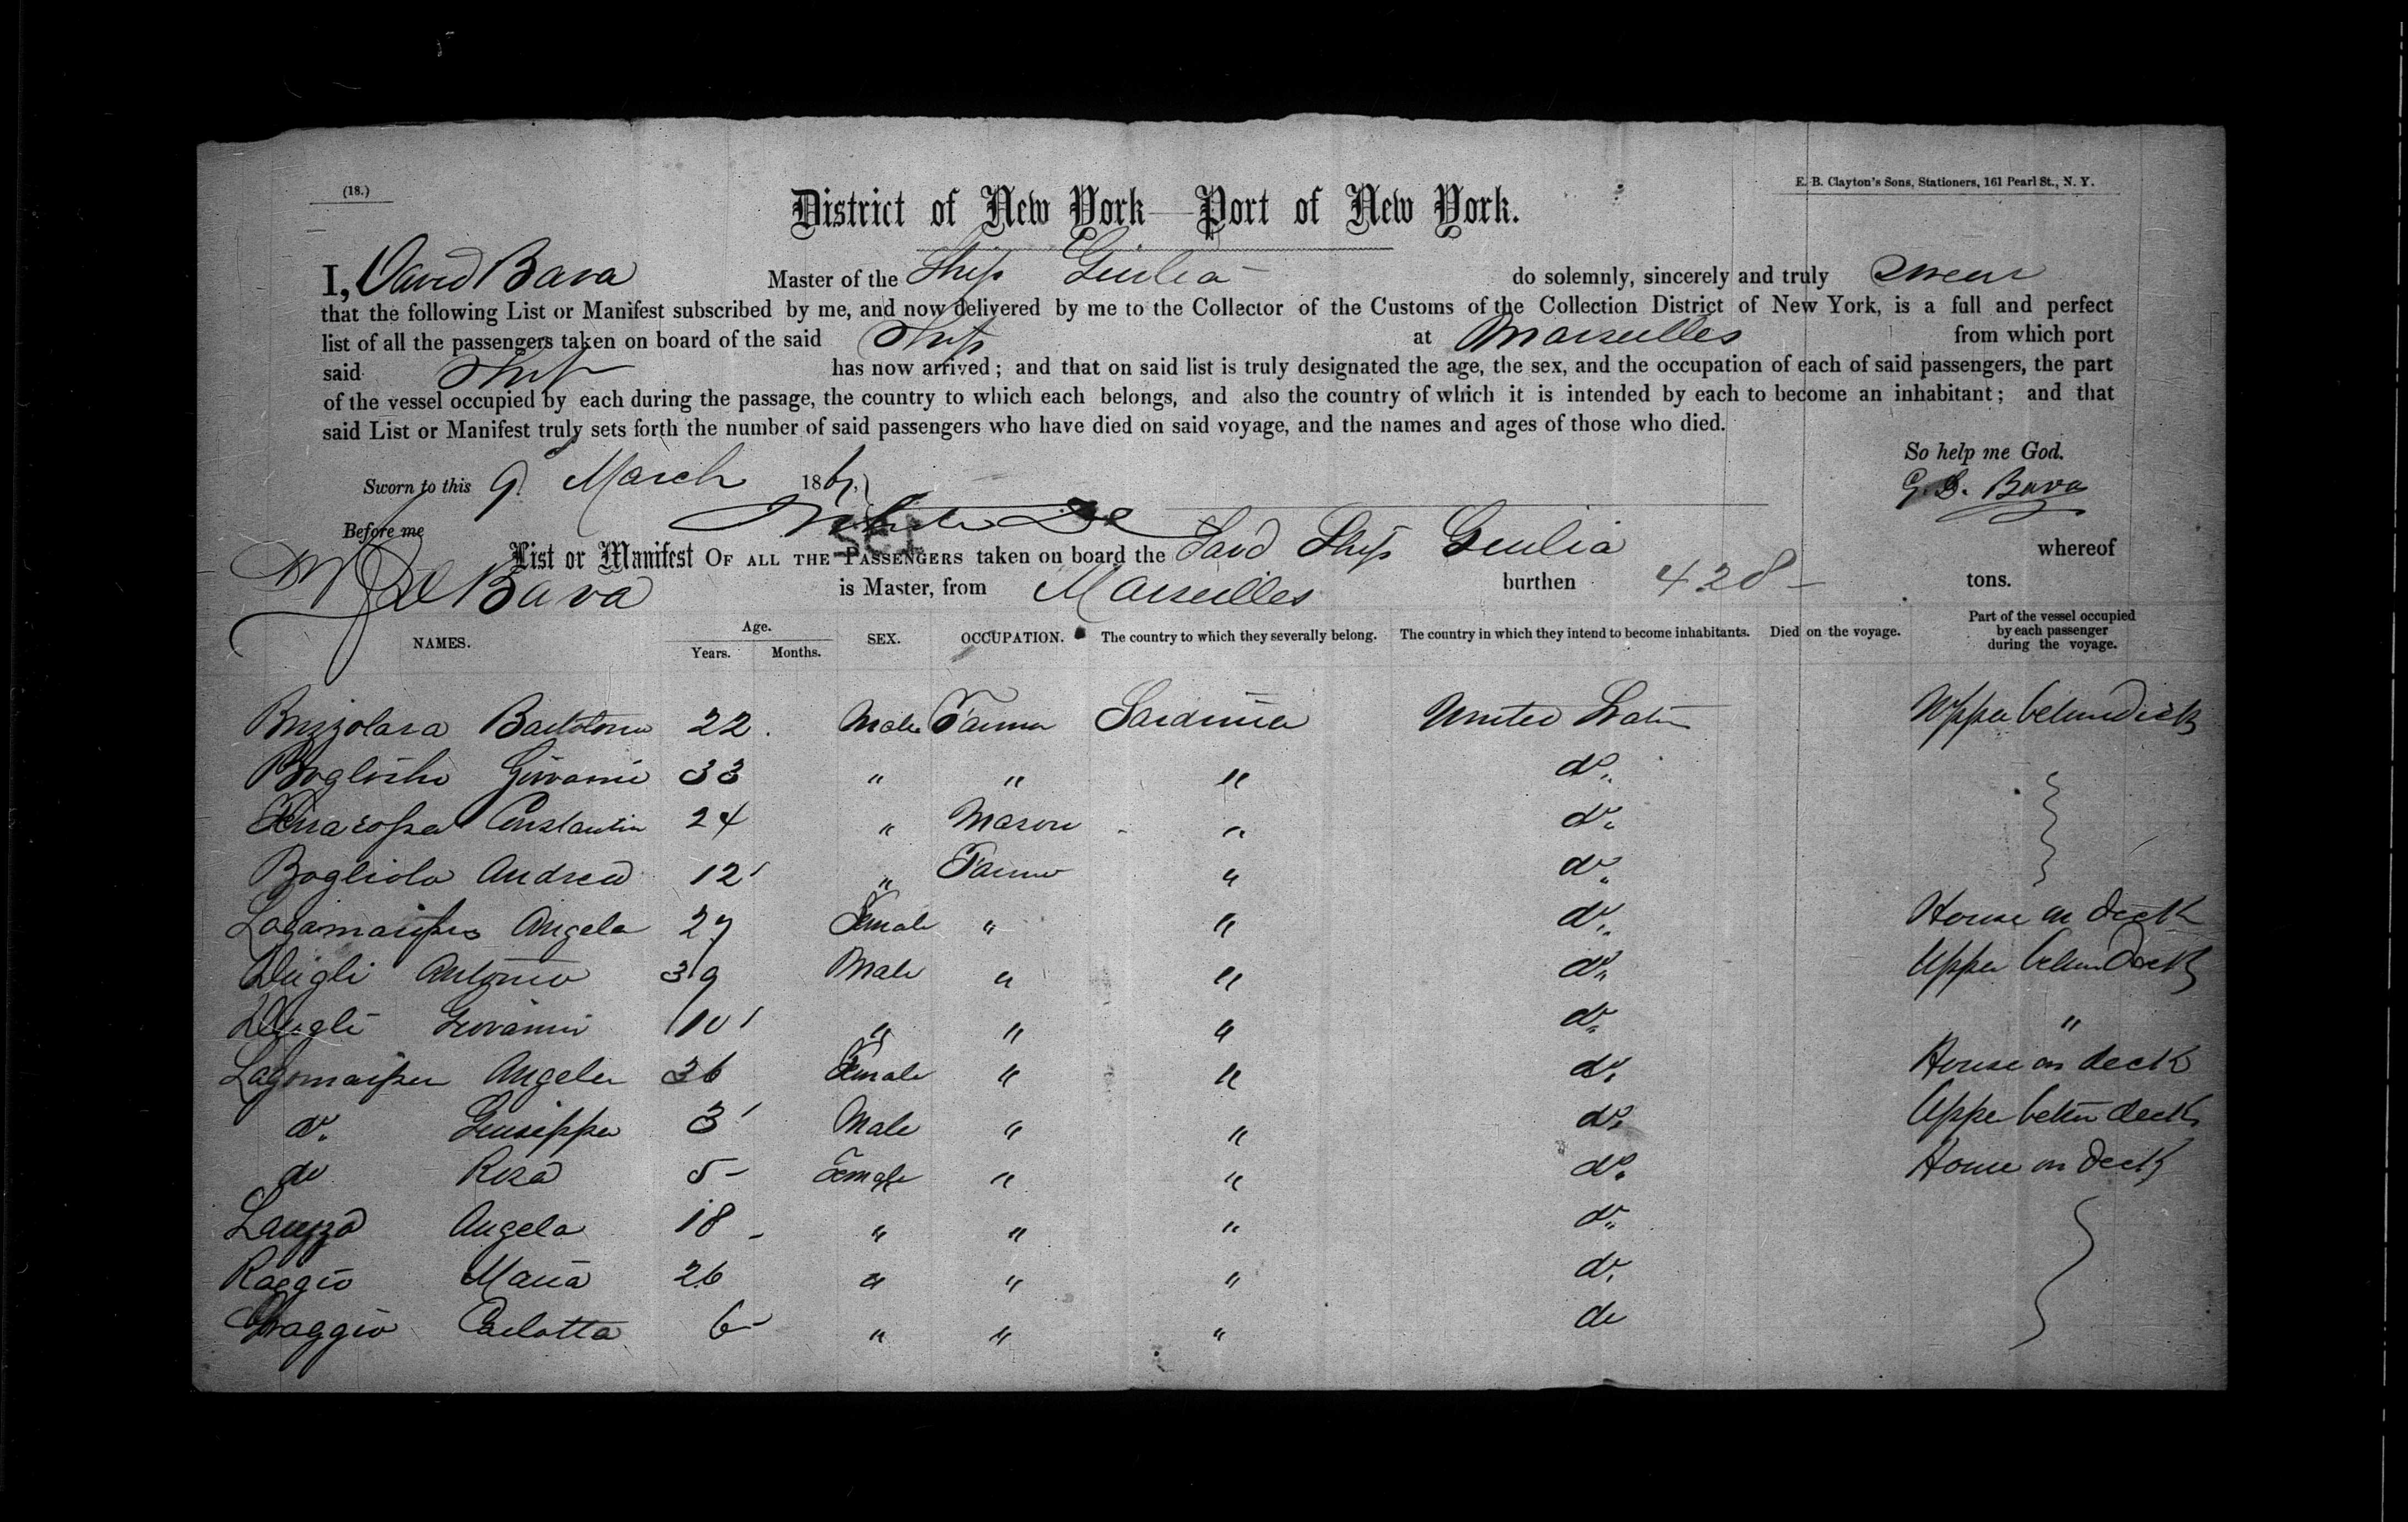 (18.)
E. B. Clayton's Sons, Stationers, 161 Pearl St., N. Y.
District of New York—Port of New York.
I, David Bava Master of the Ship Giulia do solemnly, sincerely and truly swear
that the following List or Manifest subscribed by me, and now delivered by me to the Collector of the Customs of the Collection District of New York, is a full and perfect
list of all the passengers taken on board of the said Ship at Marseilles from which port
said Ship has now arrived; and that on said list is truly designated the age, the sex, and the occupation of each of said passengers, the part
of the vessel occupied by each during the passage, the country to which each belongs, and also the country of which it is intended by each to become an inhabitant; and that
said List or Manifest truly sets forth the number of said passengers who have died on said voyage, and the names and ages of those who died.
So help me God.
Sworn to this 9 March 186
Bava
Before me
List or Manifest OF ALL THE PASSENGERS taken on board the Said Ship Giulia whereof
Bava is Master, from Marseilles burthen 428 tons.
NAMES. Age. Years. Months. SEX. OCCUPATION. The country to which they severally belong. The country in which they intend to become inhabitants. Died on the voyage. Part of the vessel occupied by each passenger during the voyage.
22 Male Farmer Sardinia United States Upper between deck
Giovanni 33 " " " do
24 " Mason " do
Bogliolo Andrea 12 " Farmer " do
Angela 27 Female " " do House on deck
Antonio 39 Male " " do Upper between Deck
Giovanni 10 " " " do "
Angela 36 Female " " do House on deck
do Giuseppe 3 Male " " do Upper betwn deck
do Rosa 5 Female " " do House on deck
Angela 18 " " " do
Raggio Maria 26 " " " do
Raggio Carlotta 6 " " " do